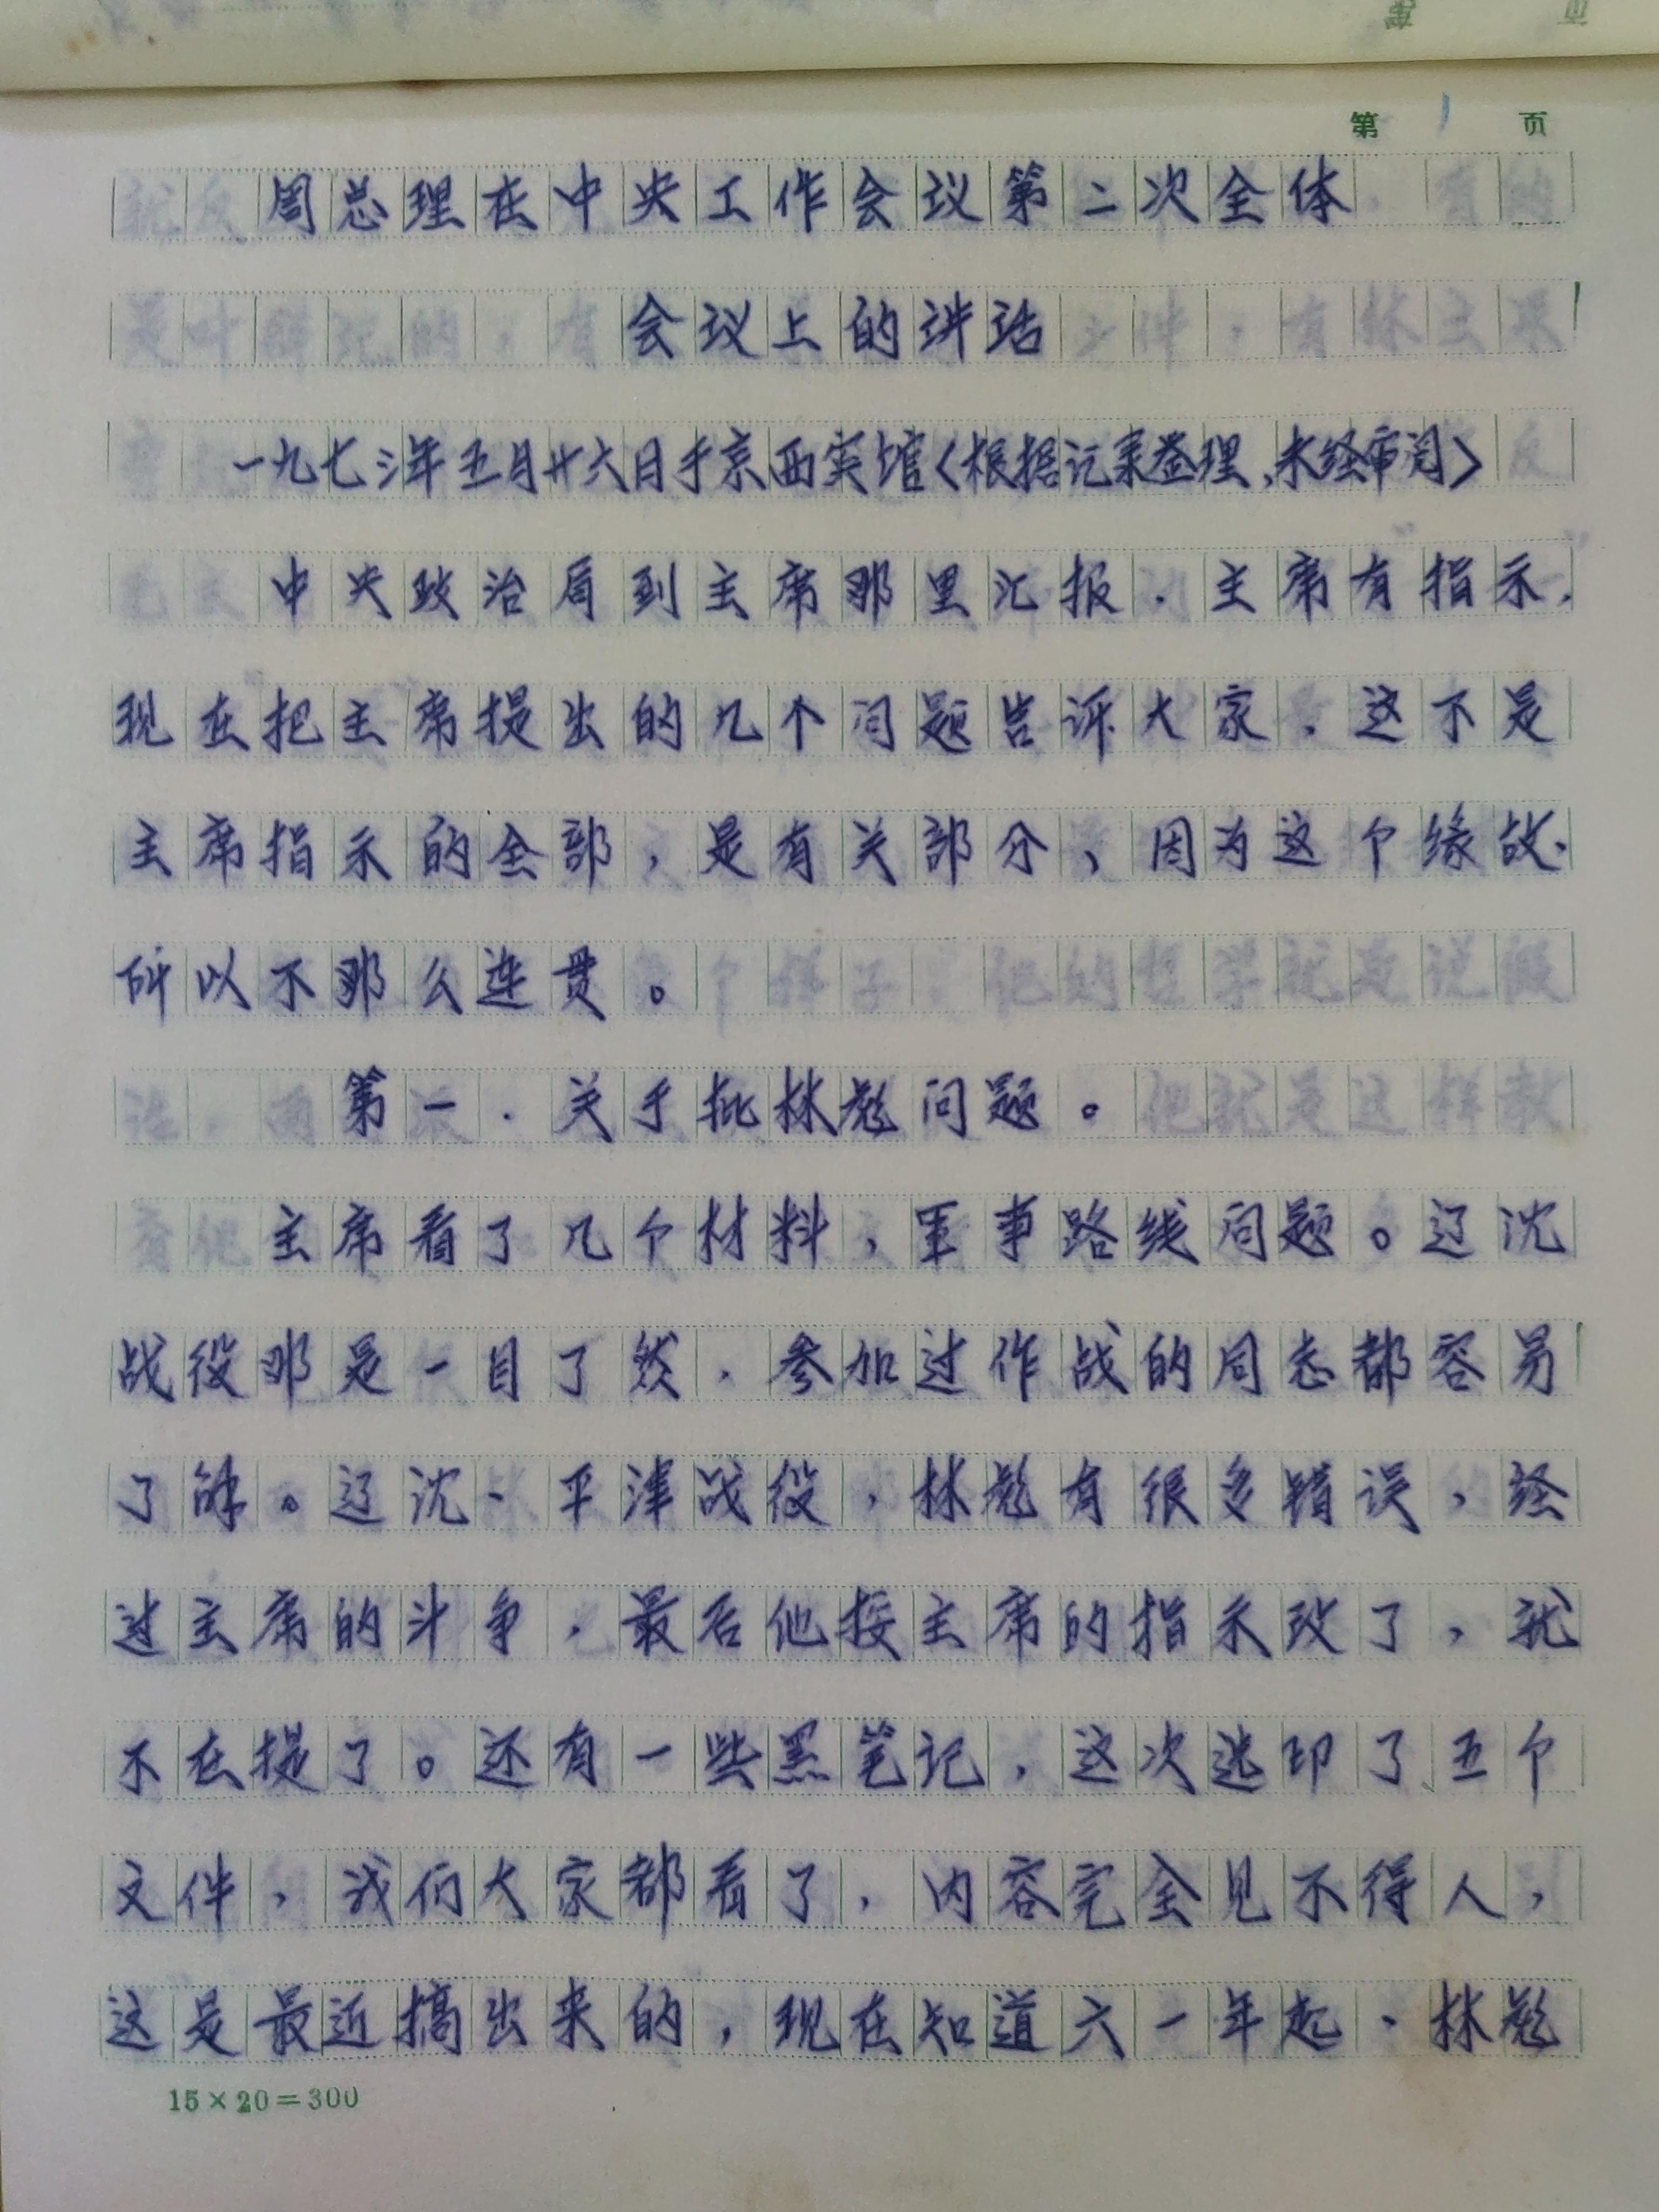 第 1 页
周总理在中央工作会议第二次全体
会议上的讲话
一九七三年五月廿六日于京西宾馆〈根据记录整理、未经审阅〉
中央政治局到主席那里汇报．主席有指示，
现在把主席提出的几个问题告诉大家，这不是
主席指示的全部，是有关部分、因为这个缘故．
所以不那么连贯。
第一．关于批林彪问题。
主席看了几个材料，军事路线问题。辽沈
战役那是一目了然．参加过作战的同志都容易
了解。辽沈、平津战役，林彪有很多错误，经
过主席的斗争，最后他按主席的指示改了，就
不在提了。还有一些黑笔记，这次选印了五个
文件，我们大家都看了，内容完全见不得人，
这是最近搞出来的，现在知道六一年起、林彪
15×20=300